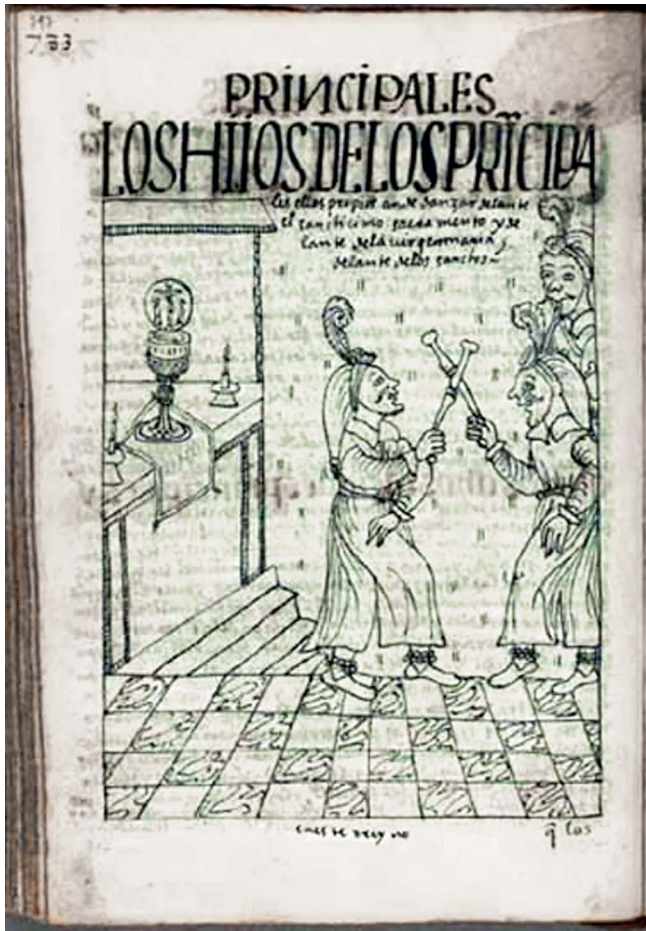 797
783
PRINCIPALES
LOS HIJOS DE LOS PRĨCIPA
les ellos propios an de danzar delante
el sanctícimo sacramento y de
lante de la uirgen maria y
delante de los sanctos
en este rreyno
q̃ los